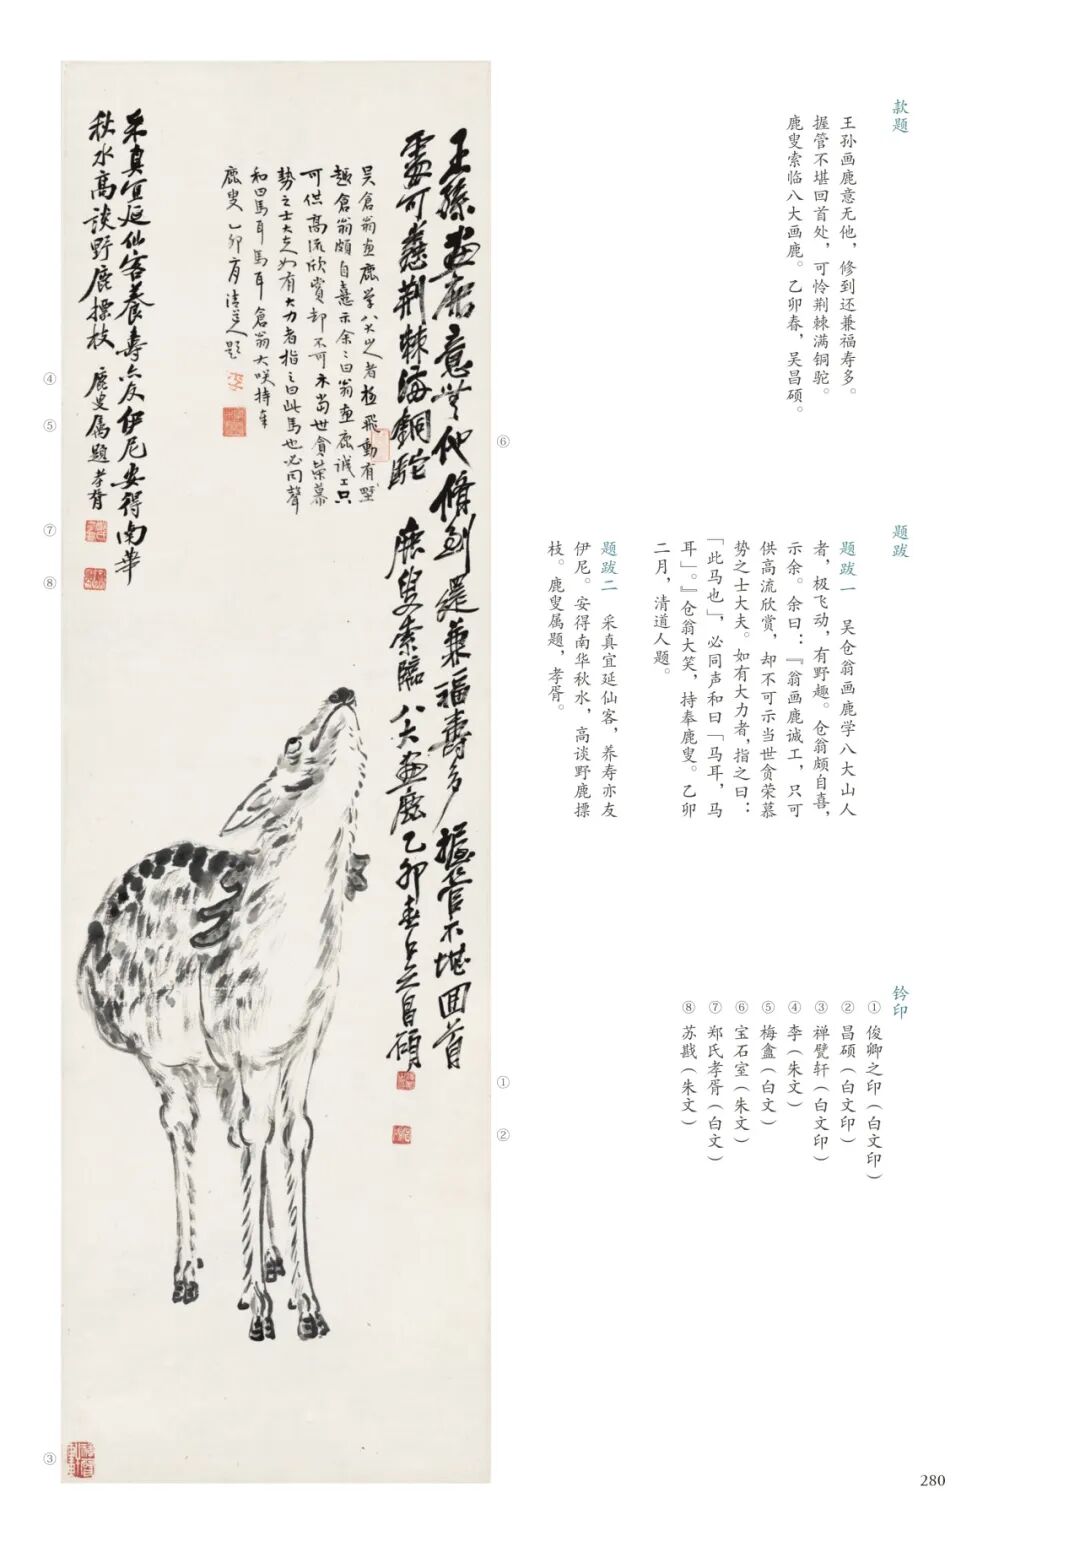 王孫画鹿意无他脩到還兼福壽多握管不堪回首
處可憐荆棘滿銅駝 鹿叟索臨八大画鹿乙卯春吴昌碩
吴倉翁画鹿學八大山人者極飛動有野
趣倉翁頗自憙示余余曰翁画鹿誠工只
可供高流欣賞却不可示當世貪榮慕
勢之士大夫如有大力者指之曰此馬也必同聲
和曰馬耳馬耳倉翁大咲持奉
鹿叟 乙卯二月清道人題
采真宜延仙客養壽亦友伊尼安得南華
秋水高談野鹿摽枝 鹿叟属題 孝胥
①
②
③
④
⑤
⑥
⑦
⑧
款题
王孙画鹿意无他，修到还兼福寿多。
握管不堪回首处，可怜荆棘满铜驼。
鹿叟索临八大画鹿。乙卯春，吴昌硕。
题跋
题跋一 吴仓翁画鹿学八大山人
者，极飞动，有野趣。仓翁颇自喜，
示余。余曰：『翁画鹿诚工，只可
供高流欣赏，却不可示当世贪荣慕
势之士大夫。如有大力者，指之曰：
「此马也」，必同声和曰「马耳，马
耳」。』仓翁大笑，持奉鹿叟。乙卯
二月，清道人题。
题跋二 采真宜延仙客，养寿亦友
伊尼。安得南华秋水，高谈野鹿摽
枝。鹿叟属题，孝胥。
钤印
① 俊卿之印（白文印）
② 昌硕（白文印）
③ 禅甓轩（白文印）
④ 李（朱文）
⑤ 梅盦（白文）
⑥ 宝石室（朱文）
⑦ 郑氏孝胥（白文）
⑧ 苏戡（朱文）
280